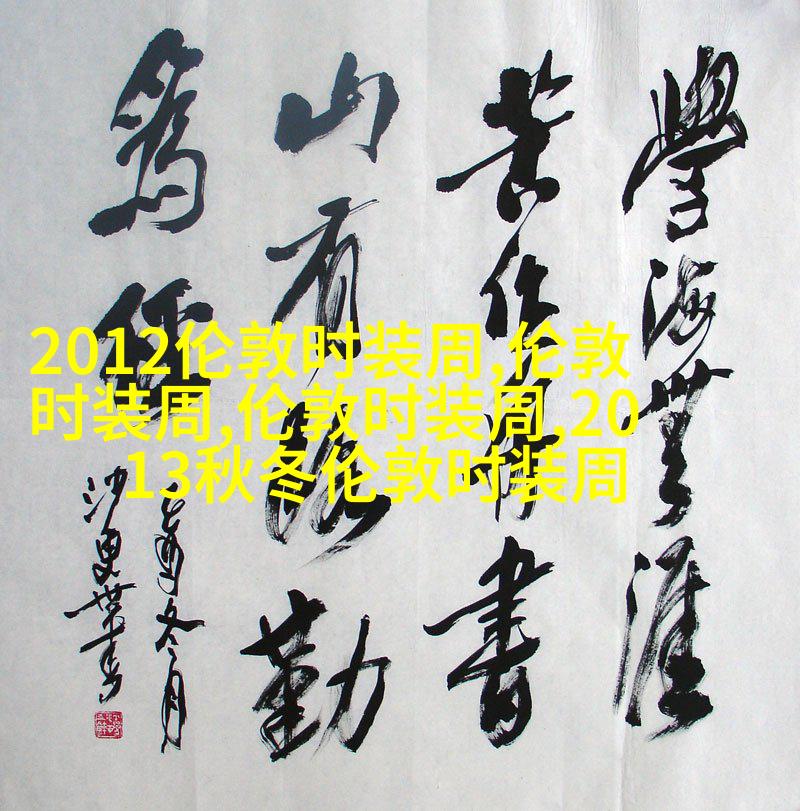 2012伦敦时装周,伦敦
时装周,伦敦时装周,20
13秋冬伦敦时装周
學海無涯
苦作舟書
山有路勤
為徑
酉冬月